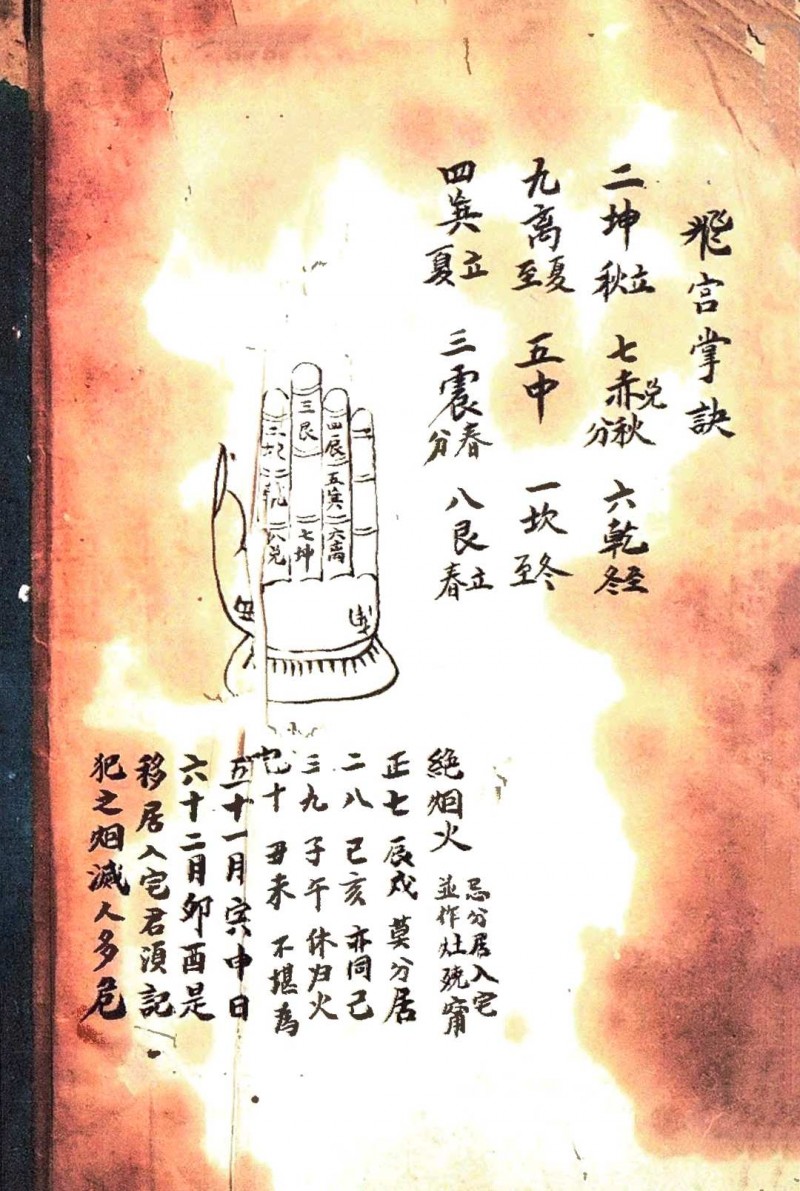 飛宫掌訣
二坤立秋 七赤兑秋分 六乾至冬
九离夏至 五中 一坎冬至
四巽立夏 三震春分 八艮立春
四辰 五巽 六离
三艮 七坤
八兑
絕烟火 忌分居入宅
並作灶
正七 辰戌 莫分居
二八 己亥 亦同己
三九 子午 休归火
十 丑未 不堪為
五十一月寅申日
六十二月卯酉是
移居入宅君須記
犯之烟滅人多危